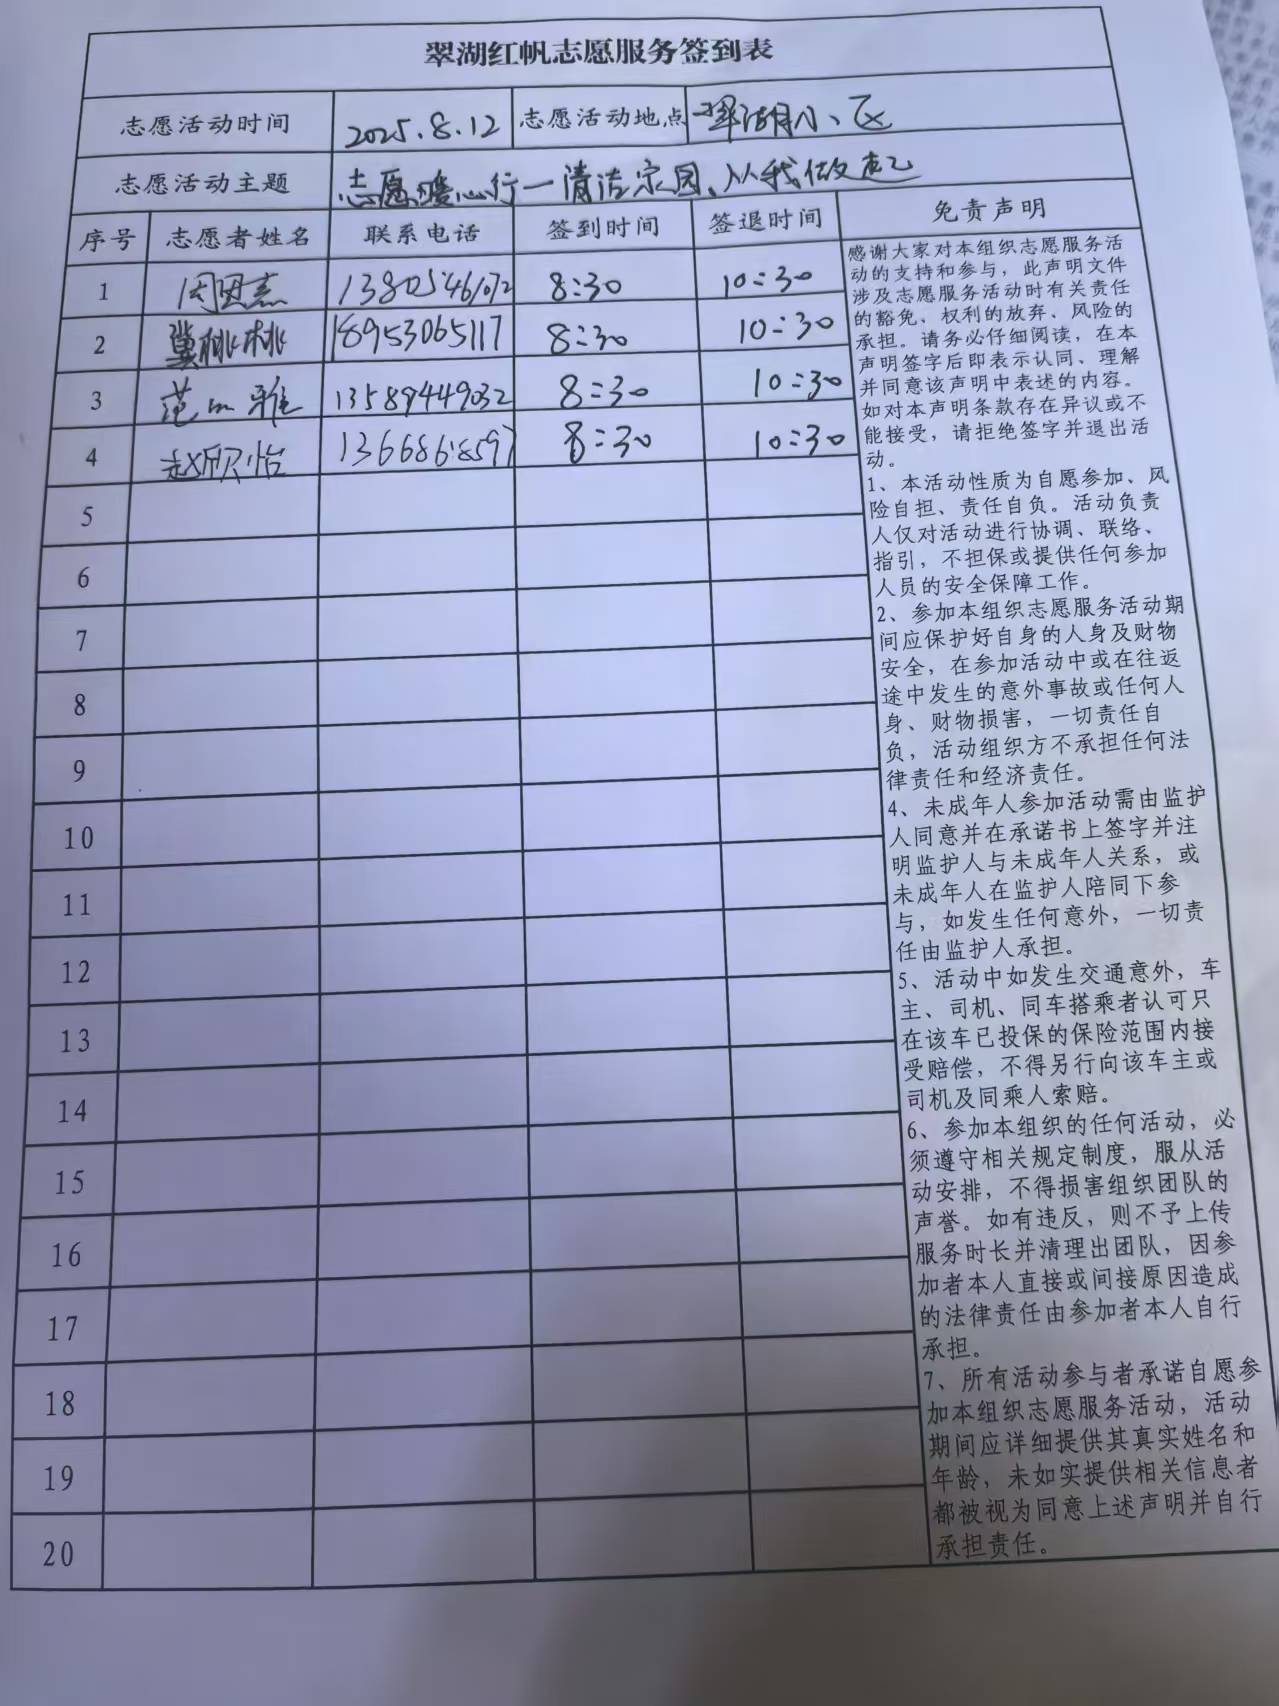 翠湖红帆志愿服务签到表
志愿活动时间 2025.8.12 志愿活动地点 翠湖小区
志愿活动主题 志愿暖心行一清洁家园、从我做起
序号 志愿者姓名 联系电话 签到时间 签退时间 免责声明
1 13805461072 8:30 10:30
2 冀桃桃 18953065117 8:30 10:30
3 范 雅 13589449032 8:30 10:30
4 赵欣怡 13668618597 8:30 10:30
5
6
7
8
9
10
11
12
13
14
15
16
17
18
19
20
感谢大家对本组织志愿服务活
动的支持和参与，此声明文件
涉及志愿服务活动时有关责任
的豁免、权利的放弃、风险的
承担。请务必仔细阅读，在本
声明签字后即表示认同、理解
并同意该声明中表述的内容。
如对本声明条款存在异议或不
能接受，请拒绝签字并退出活
动。
1、本活动性质为自愿参加、风
险自担、责任自负。活动负责
人仅对活动进行协调、联络、
指引，不担保或提供任何参加
人员的安全保障工作。
2、参加本组织志愿服务活动期
间应保护好自身的人身及财物
安全，在参加活动中或在往返
途中发生的意外事故或任何人
身、财物损害，一切责任自
负，活动组织方不承担任何法
律责任和经济责任。
4、未成年人参加活动需由监护
人同意并在承诺书上签字并注
明监护人与未成年人关系，或
未成年人在监护人陪同下参
与，如发生任何意外，一切责
任由监护人承担。
5、活动中如发生交通意外，车
主、司机、同车搭乘者认可只
在该车已投保的保险范围内接
受赔偿，不得另行向该车主或
司机及同乘人索赔。
6、参加本组织的任何活动，必
须遵守相关规定制度，服从活
动安排，不得损害组织团队的
声誉。如有违反，则不予上传
服务时长并清理出团队，因参
加者本人直接或间接原因造成
的法律责任由参加者本人自行
承担。
7、所有活动参与者承诺自愿参
加本组织志愿服务活动，活动
期间应详细提供其真实姓名和
年龄，未如实提供相关信息者
都被视为同意上述声明并自行
承担责任。